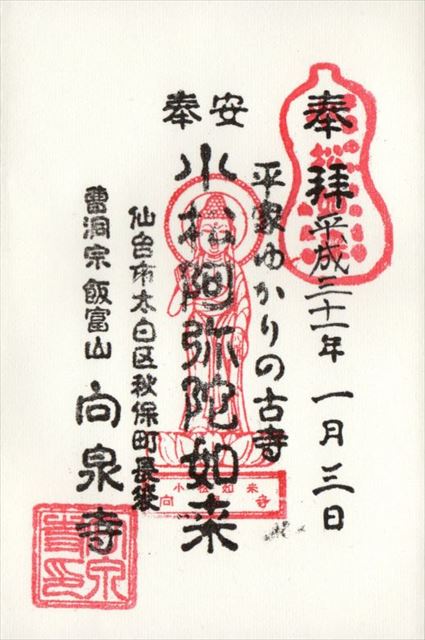 奉拝 平成三十一年 一月三日
平家ゆかりの古寺
奉安
小松阿弥陀如来
仙台市太白区秋保町長袋
曹洞宗飯富山 向泉寺
小松如来
向 寺